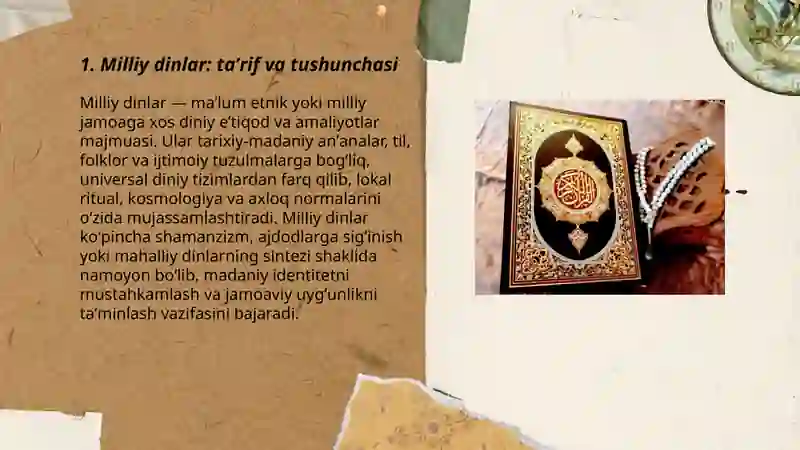 1. Milliy dinlar: ta’rif va tushunchasi
Milliy dinlar — ma’lum etnik yoki milliy
jamoaga xos diniy e’tiqod va amaliyotlar
majmuasi. Ular tarixiy-madaniy an’analar, til,
folklor va ijtimoiy tuzulmalarga bog‘liq,
universal diniy tizimlardan farq qilib, lokal
ritual, kosmologiya va axloq normalarini
o‘zida mujassamlashtiradi. Milliy dinlar
ko‘pincha shamanzizm, ajdodlarga sig‘inish
yoki mahalliy dinlarning sintezi shaklida
namoyon bo‘lib, madaniy identitetni
mustahkamlash va jamoaviy uyg‘unlikni
ta’minlash vazifasini bajaradi.